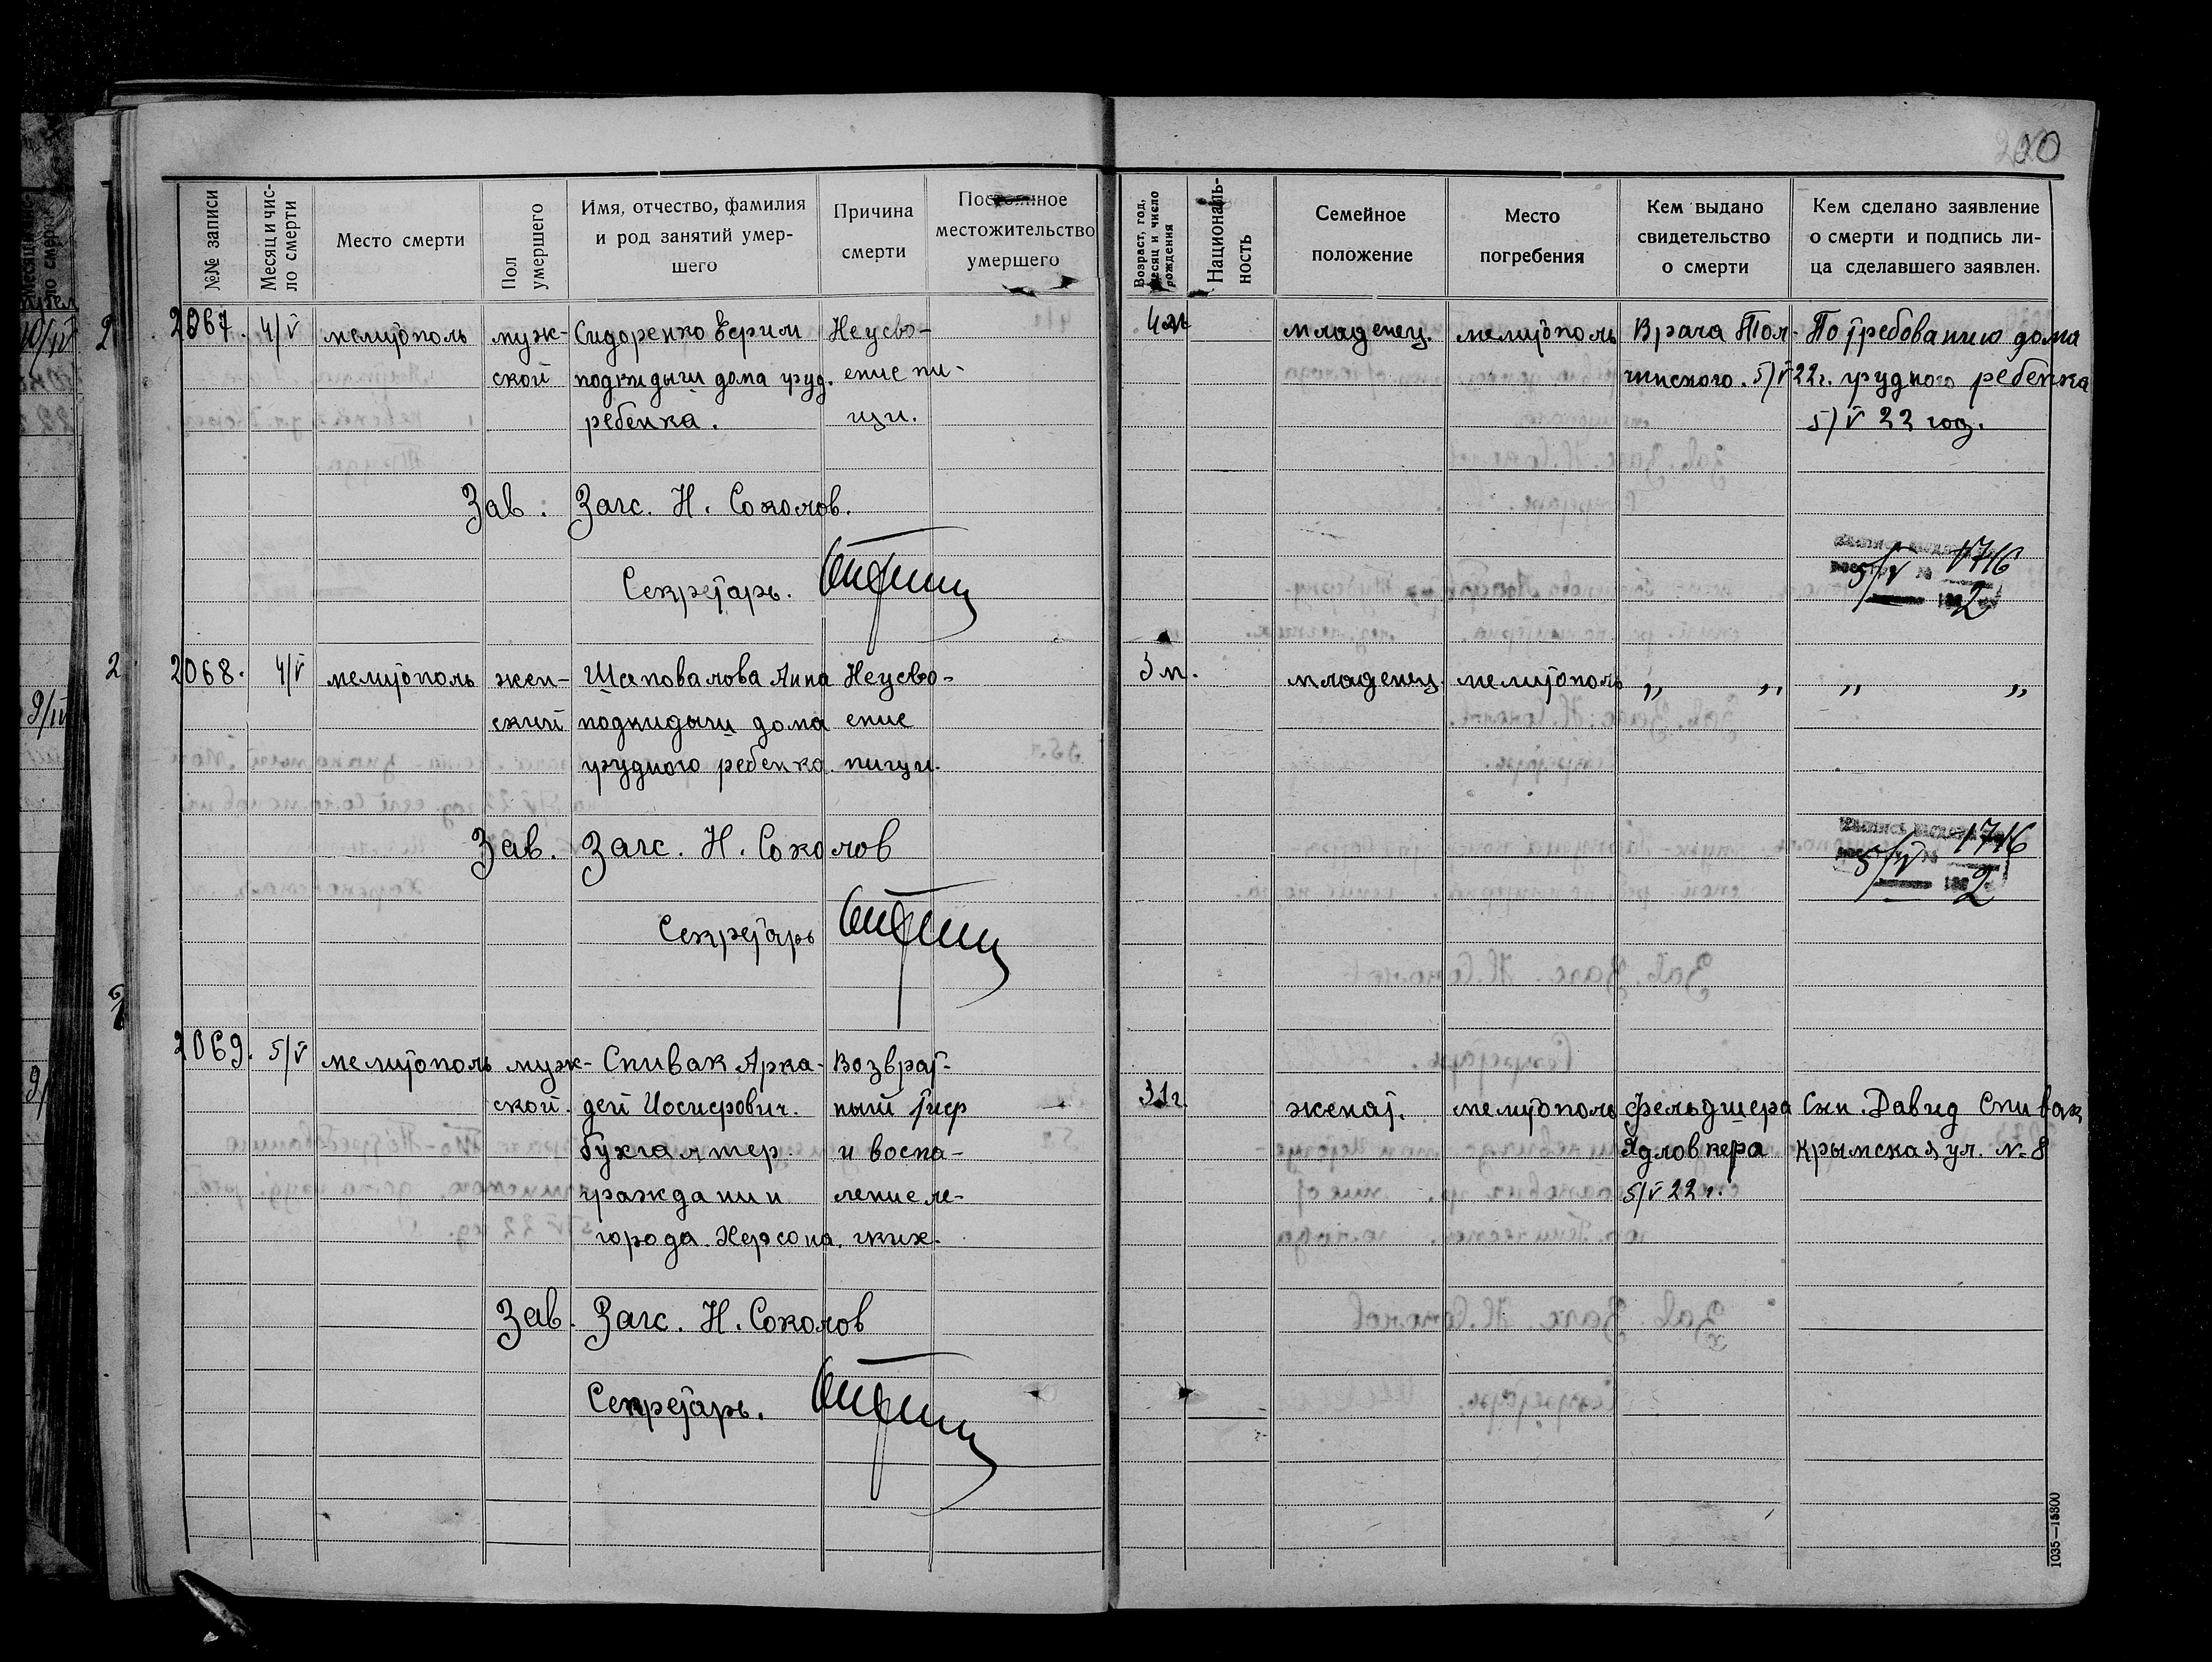 200
№№ записи
Месяц и число смерти
Место смерти
Пол умершего
Имя, отчество, фамилия
и род занятий умер-
шего
Причина
смерти
Постоянное
местожительство
умершего
Возраст, год,
месяц и число
рождения
Националь-
ность
Семейное
положение
Место
погребения
Кем выдано
свидетельство
о смерти
Кем сделано заявление
о смерти и подпись ли-
ца сделавшего заявлен.
2067. 4/V мелитополь муж- Сидоренко Ефрим Неусво- 4м младенец. мелитополь Врача Тол- По требованию дома
ской подкидыш дома груд. ение пи- чинского. 5/V 22г. грудного ребенка
ребенка. щи. 5/V 22 год.
Зав. Загс. Н. Соколов.
Секретарь.
5/V 1716
2
2068. 4/V мелитополь жен- Шаповалова Анна Неусво- 3 м. младенец. мелитополь „ „ „ „
ский подкидыш дома ение
грудного ребенка. пищи.
Зав. Загс. Н. Соколов
5/V 1716
2
Секретарь
2069. 5/V мелитополь муж- Спивак Арка- Возврат-
ской. дей Иосифович. ный тиф 31г. женат. мелитополь фельдшера Сын. Давид Спивак
бухгалтер и воспа- Ядловкера Крымская ул. № 8
гражданин ление ле- 5/V 22 г.
города Херсона. гких.
Зав. Загс. Н. Соколов
Секретарь.
1035—15800